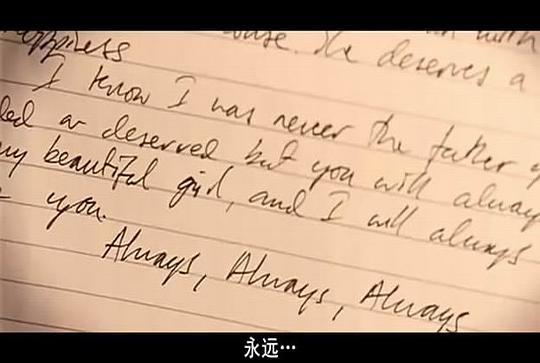 with
happiness course. He deserves a
I know I was never the father y
ded or deserved but you will alway
my beautiful girl, and I will always
you.
Always, Always, Always
永远…